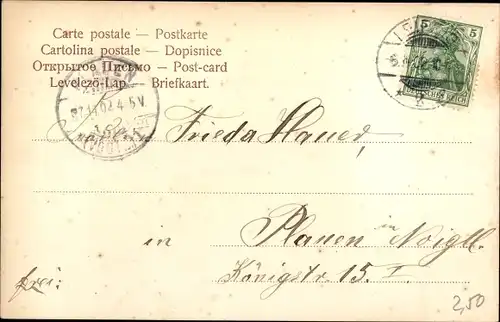 Carte postale — Postkarte
Cartolina postale — Dopisnice
Открытое Письмо — Post-card
Levelező-Lap — Briefkaart.
5 5
PLAUEN
4-5 V
(VOGTL.)
Frieda Hauer,
in Plauen in Voigtl.
Königstr. 15. I.
frei:
2,50